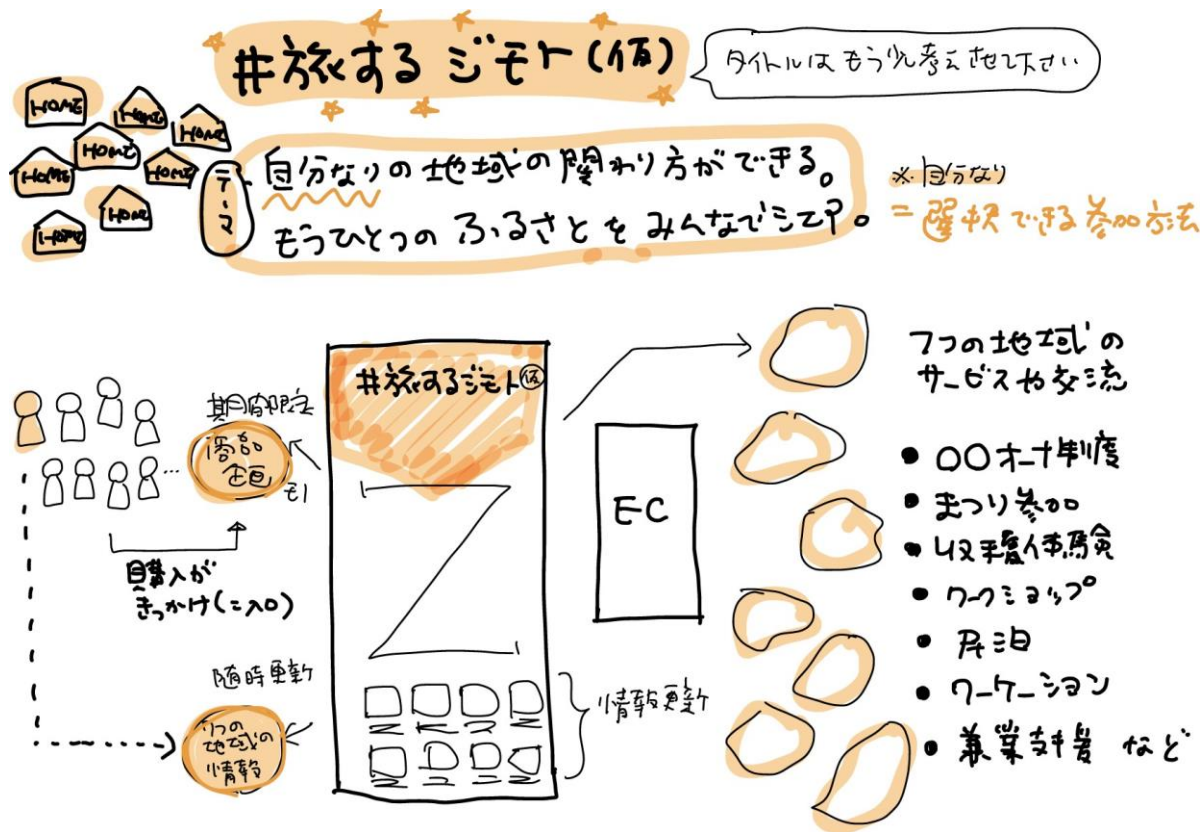 #旅する ジモト(仮)
タイトルは もう少し考えさせて下さい
HOME
HOME
HOME
HOME
HOME
HOME
HOME
HOME
テーマ
自分なりの地域の関わり方ができる。
もうひとつの ふるさとを みんなでシェア。
※自分なり
=選択できる参加方法
#旅するジモト(仮)
期間限定
商品
企画
購入が
きっかけ(=入口)
随時更新
7つの
地域の
情報
情報更新
EC
7つの地域の
サービスや交流
● 〇〇オーナー制度
● まつり参加
● 収穫体験
● ワークショップ
● 民泊
● ワーケーション
● 兼業支援 など